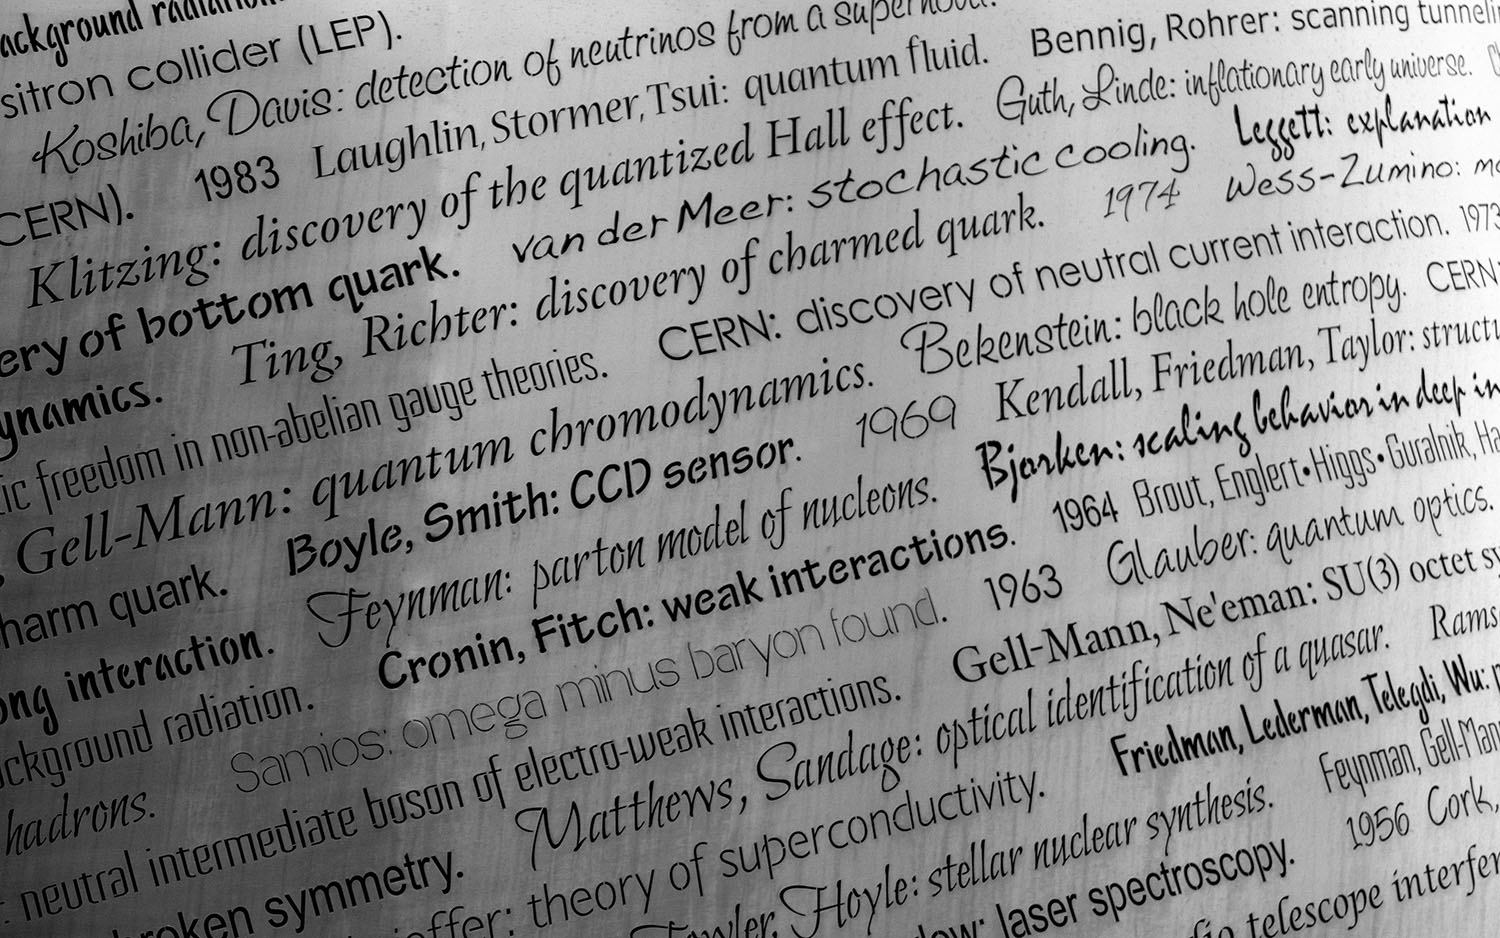 background radiation
sitron collider (LEP).
Koshiba, Davis: detection of neutrinos from a supernova.
CERN). 1983 Laughlin, Stormer, Tsui: quantum fluid. Bennig, Rohrer: scanning
Klitzing: discovery of the quantized Hall effect. Guth, Linde: inflationary early universe.
ery of bottom quark. van der Meer: stochastic cooling. Leggett: explanation
ynamics. Ting, Richter: discovery of charmed quark. 1974 Wess-Zumino:
ic freedom in non-abelian gauge theories. CERN: discovery of neutral current interaction. 1973
, Gell-Mann: quantum chromodynamics. Bekenstein: black hole entropy. CERN:
harm quark. Boyle, Smith: CCD sensor. 1969 Kendall, Friedman, Taylor: structu
ong interaction. Feynman: parton model of nucleons. Bjorken: scaling behavior in deep in
ckground radiation. Cronin, Fitch: weak interactions. 1964 Brout, Englert•Higgs•Guralnik, Ha
hadrons. Samios: omega minus baryon found. 1963 Glauber: quantum optics.
: neutral intermediate boson of electro-weak interactions. Gell-Mann, Ne'eman: SU(3) octet sy
broken symmetry. Matthews, Sandage: optical identification of a quasar. Rams
ieffer: theory of superconductivity. Friedman, Lederman, Telegdi, Wu: p
Fowler, Hoyle: stellar nuclear synthesis. Feynman, Gell-Mann
low: laser spectroscopy. 1956 Cork,
dio telescope interfer